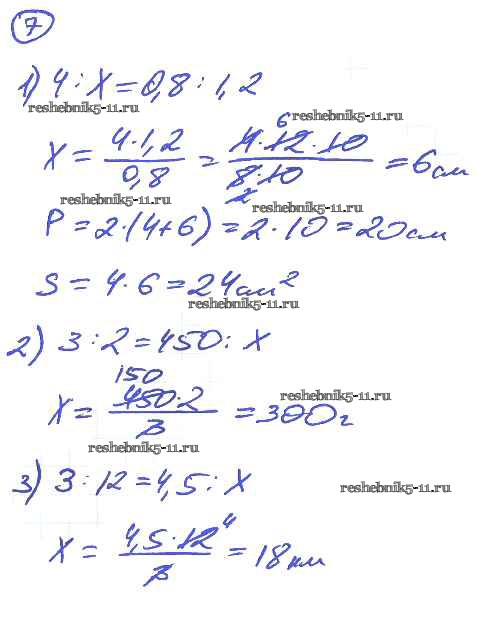 7
1) 4 : x = 0,8 : 1,2
reshebnik5-11.ru
6 reshebnik5-11.ru
x = 4·1,2 / 0,8 = 4·12·10 / 8·10 = 6 см
2
reshebnik5-11.ru reshebnik5-11.ru
P = 2·(4+6) = 2·10 = 20 см
S = 4·6 = 24 см²
reshebnik5-11.ru
2) 3 : 2 = 450 : x
150
reshebnik5-11.ru
x = 450·2 / 3 = 300 г
reshebnik5-11.ru
3) 3 : 12 = 4,5 : x
reshebnik5-11.ru
4
x = 4,5·12 / 3 = 18 км